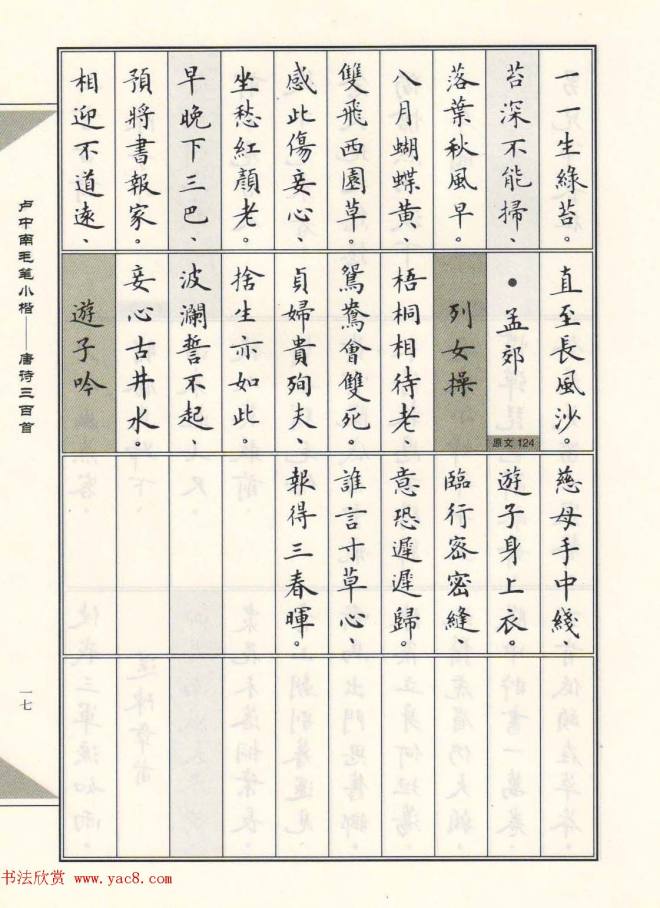 一一生綠苔。
苔深不能掃、
落葉秋風早。
八月蝴蝶黃、
雙飛西園草。
感此傷妾心、
坐愁紅顏老。
早晚下三巴、
預將書報家。
相迎不道遠、
直至長風沙。
·孟郊
原文 124
列女操
梧桐相待老、
鴛鴦會雙死。
貞婦貴殉夫、
捨生亦如此。
波瀾誓不起、
妾心古井水。
遊子吟
慈母手中綫、
遊子身上衣。
臨行密密縫、
意恐遲遲歸。
誰言寸草心、
報得三春暉。
卢中南毛笔小楷——唐诗三百首
一七
书法欣赏 www.yac8.com